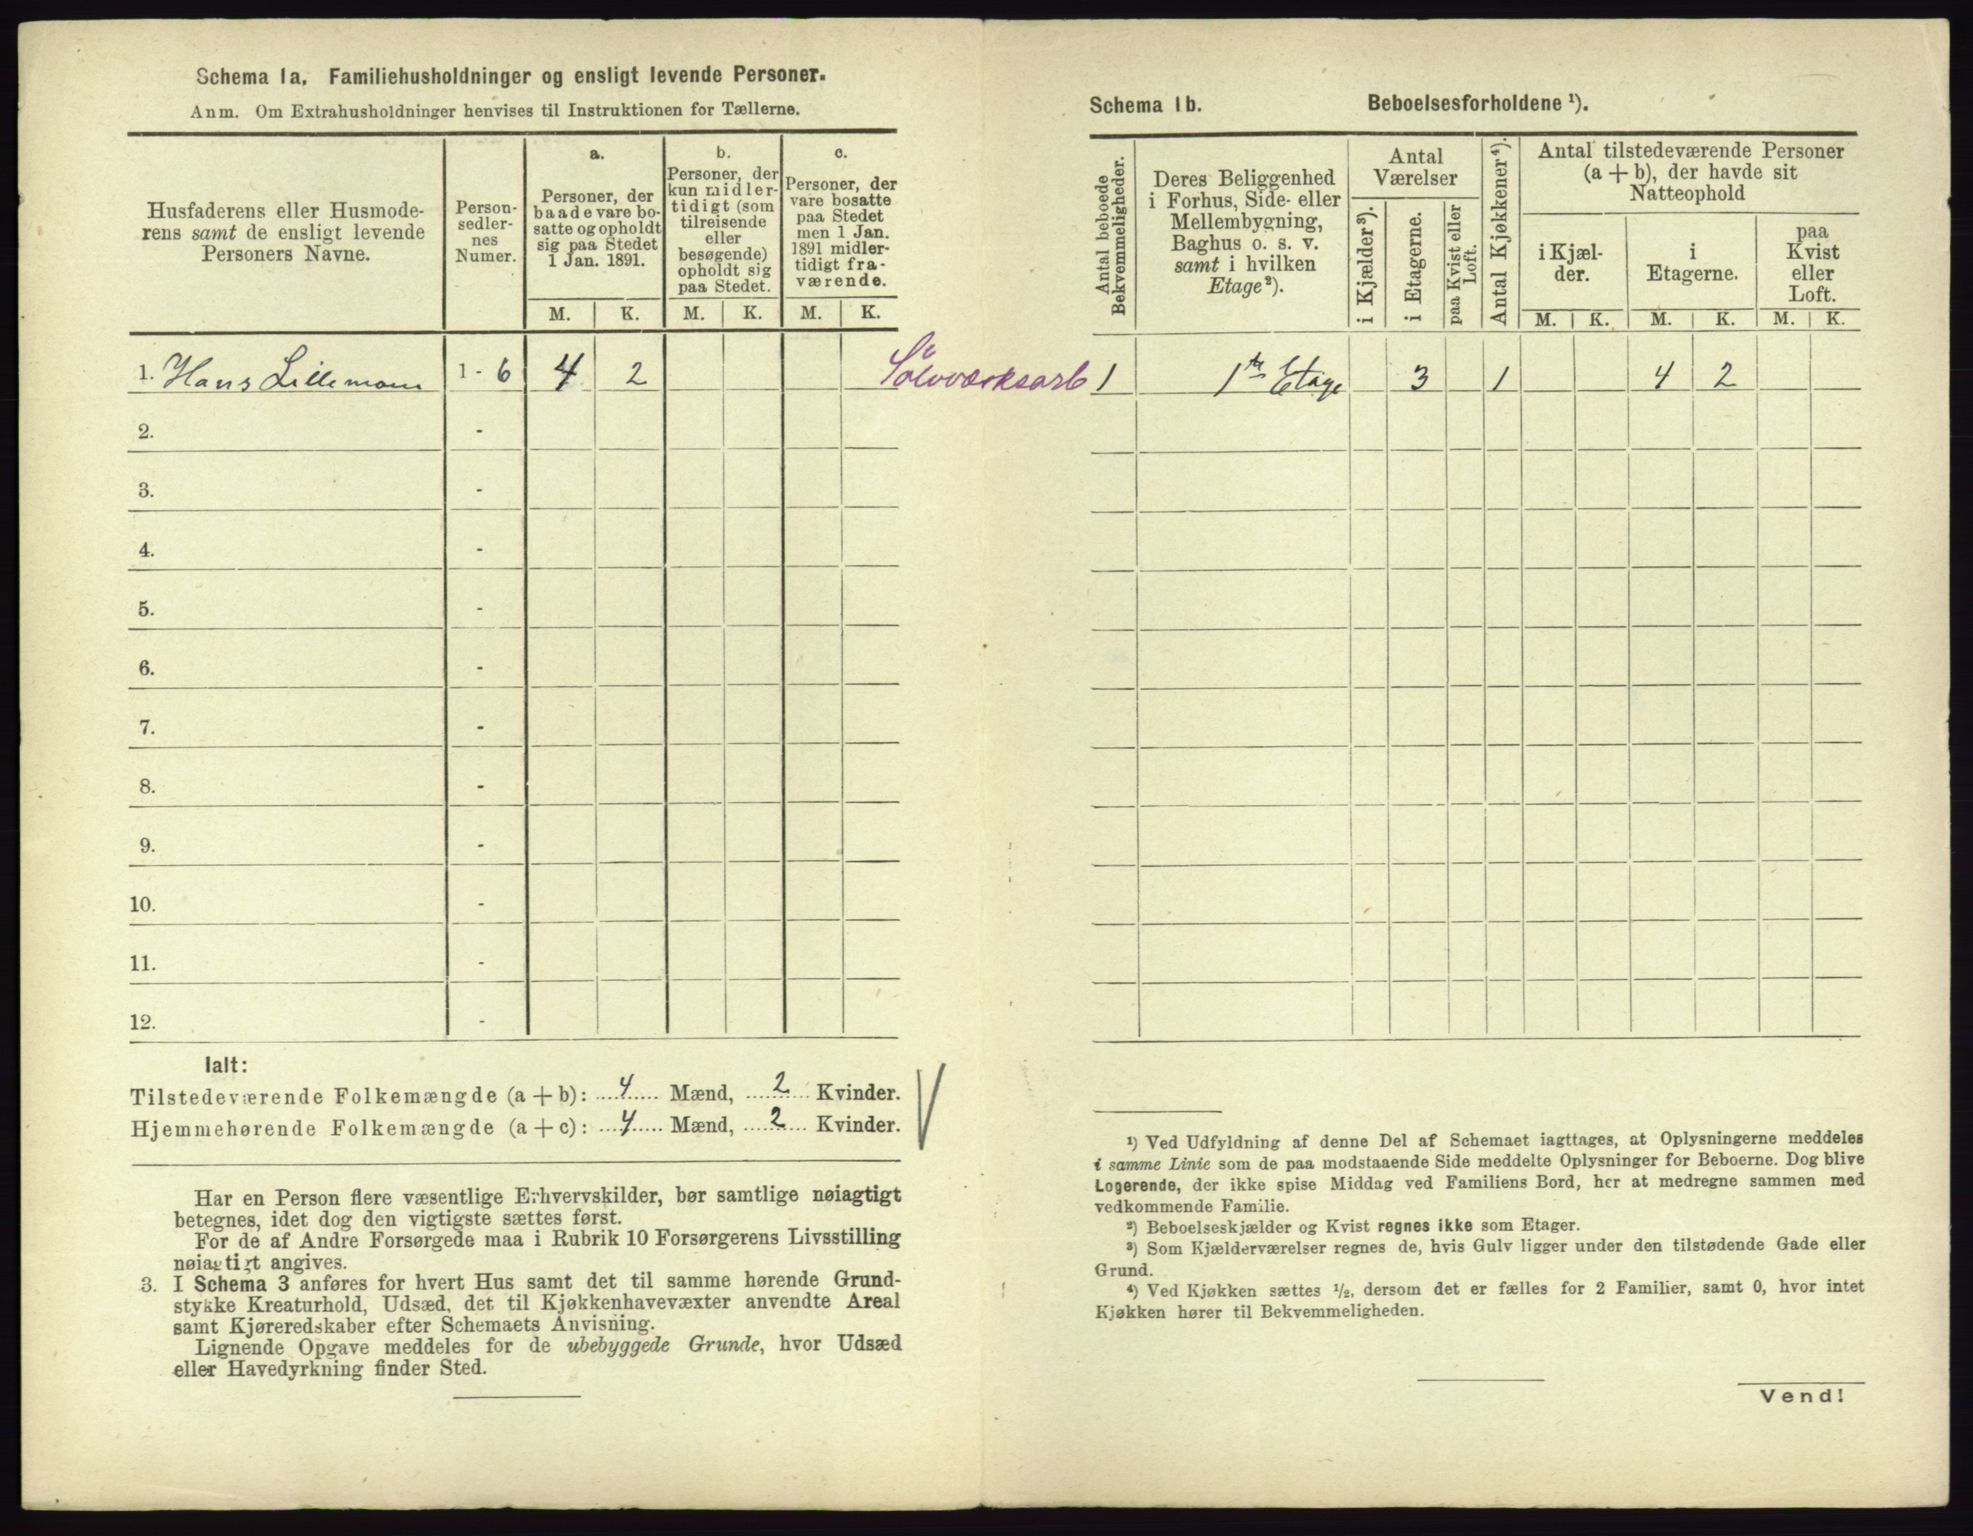 Schema 1a. Familiehusholdninger og ensligt levende Personer.
Anm. Om Extrahusholdninger henvises til Instruktionen for Tællerne.
Husfaderens eller Husmode-
rens samt de ensligt levende
Personers Navne.
Person-
sedler-
nes
Numer.
a.
Personer, der
baade vare bo-
satte og opholdt
sig paa Stedet
1 Jan. 1891.
M. K.
b.
Personer, der
kun midler-
tidigt (som
tilreisende
eller
besøgende)
opholdt sig
paa Stedet.
M. K.
c.
Personer, der
vare bosatte
paa Stedet
men 1 Jan.
1891 midler-
tidigt fra-
værende.
M. K.
1. Hans Lillemoen 1 - 6 4 2 Sølvværksarb
2. -
3. -
4. -
5. -
6. -
7. -
8. -
9. -
10. -
11. -
12. -
Ialt:
Tilstedeværende Folkemængde (a + b): 4 Mænd, 2 Kvinder.
Hjemmehørende Folkemængde (a + c): 4 Mænd, 2 Kvinder.
Har en Person flere væsentlige Erhvervskilder, bør samtlige nøiagtigt
betegnes, idet dog den vigtigste sættes først.
For de af Andre Forsørgede maa i Rubrik 10 Forsørgerens Livsstilling
nøiagtigt angives.
3. I Schema 3 anføres for hvert Hus samt det til samme hørende Grund-
stykke Kreaturhold, Udsæd, det til Kjøkkenhavevæxter anvendte Areal
samt Kjøreredskaber efter Schemaets Anvisning.
Lignende Opgave meddeles for de ubebyggede Grunde, hvor Udsæd
eller Havedyrkning finder Sted.
Schema 1b. Beboelsesforholdene ¹).
Antal beboede
Bekvemmeligheder.
Deres Beliggenhed
i Forhus, Side- eller
Mellembygning,
Baghus o. s. v.
samt i hvilken
Etage²).
Antal
Værelser
i Kjælder³).
i Etagerne.
paa Kvist eller
Loft.
Antal Kjøkkener⁴).
Antal tilstedeværende Personer
(a + b), der havde sit
Natteophold
i Kjæl-
der.
i
Etagerne.
paa
Kvist
eller
Loft.
M. K. M. K. M. K.
1 1ste Etage 3 1 4 2
¹) Ved Udfyldning af denne Del af Schemaet iagttages, at Oplysningerne meddeles
i samme Linie som de paa modstaaende Side meddelte Oplysninger for Beboerne. Dog blive
Logerende, der ikke spise Middag ved Familiens Bord, her at medregne sammen med
vedkommende Familie.
²) Beboelseskjælder og Kvist regnes ikke som Etager.
³) Som Kjælderværelser regnes de, hvis Gulv ligger under den tilstødende Gade eller
Grund.
⁴) Ved Kjøkken sættes ½, dersom det er fælles for 2 Familier, samt 0, hvor intet
Kjøkken hører til Bekvemmeligheden.
Vend!